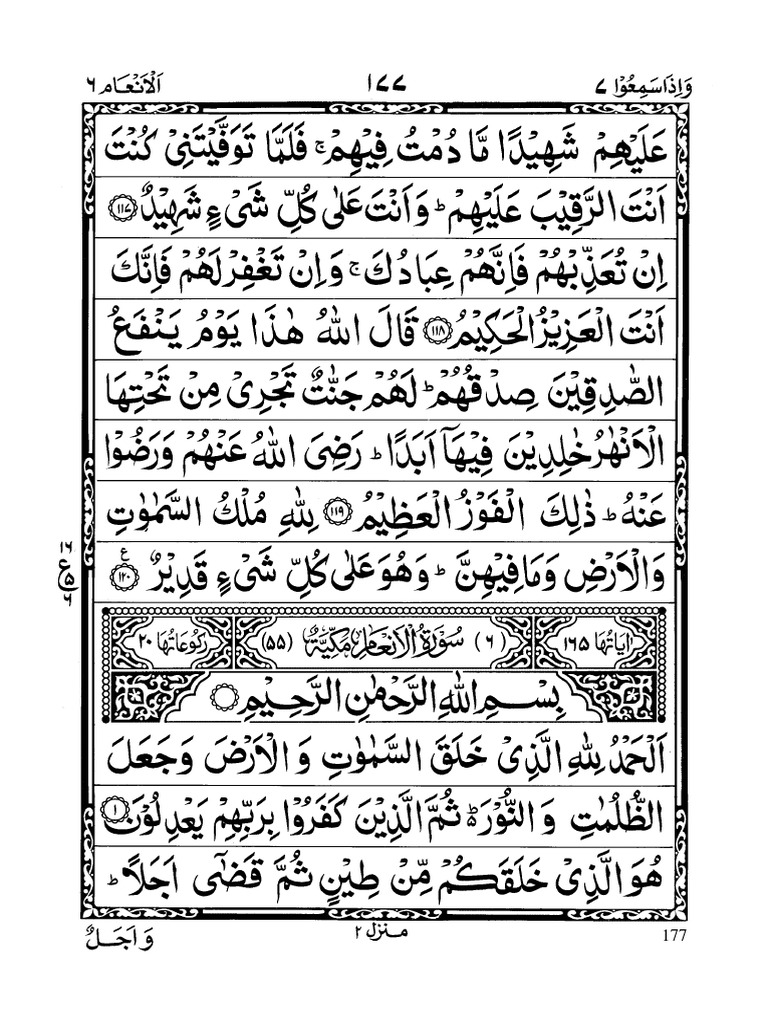 وَاِذَاسَمِعُوْا ٧ ١٧٧ اَلْاَنْعَام ٦
عَلَيْهِمْ شَهِيْدًا مَّا دُمْتُ فِيْهِمْ ۚ فَلَمَّا تَوَفَّيْتَنِىْ كُنْتَ
اَنْتَ الرَّقِيْبَ عَلَيْهِمْ ؕ وَاَنْتَ عَلٰى كُلِّ شَىْءٍ شَهِيْدٌ ۝١١٧
اِنْ تُعَذِّبْهُمْ فَاِنَّهُمْ عِبَادُكَ ۚ وَاِنْ تَغْفِرْ لَهُمْ فَاِنَّكَ
اَنْتَ الْعَزِيْزُ الْحَكِيْمُ ۝١١٨ قَالَ اللّٰهُ هٰذَا يَوْمُ يَنْفَعُ
الصّٰدِقِيْنَ صِدْقُهُمْ ؕ لَهُمْ جَنّٰتٌ تَجْرِىْ مِنْ تَحْتِهَا
الْاَنْهٰرُ خٰلِدِيْنَ فِيْهَاۤ اَبَدًا ؕ رَضِىَ اللّٰهُ عَنْهُمْ وَرَضُوْا
عَنْهُ ؕ ذٰلِكَ الْفَوْزُ الْعَظِيْمُ ۝١١٩ لِلّٰهِ مُلْكُ السَّمٰوٰتِ
وَالْاَرْضِ وَمَا فِيْهِنَّ ؕ وَهُوَ عَلٰى كُلِّ شَىْءٍ قَدِيْرٌ ۝١٢٠ ع
١٦
ع
٥
٦
اٰيَاتُهَا ١٦٥ (٦) سُوْرَةُ الْاَنْعَامِ مَكِّيَّةٌ (٥٥) رُكُوْعَاتُهَا ٢٠
بِسْمِ اللّٰهِ الرَّحْمٰنِ الرَّحِيْمِ ۝
اَلْحَمْدُ لِلّٰهِ الَّذِىْ خَلَقَ السَّمٰوٰتِ وَالْاَرْضَ وَجَعَلَ
الظُّلُمٰتِ وَالنُّوْرَ ؕ ثُمَّ الَّذِيْنَ كَفَرُوْا بِرَبِّهِمْ يَعْدِلُوْنَ ۝١
هُوَ الَّذِىْ خَلَقَكُمْ مِّنْ طِيْنٍ ثُمَّ قَضٰۤى اَجَلًا ؕ
177 منزل ٢ وَاَجَلٌ